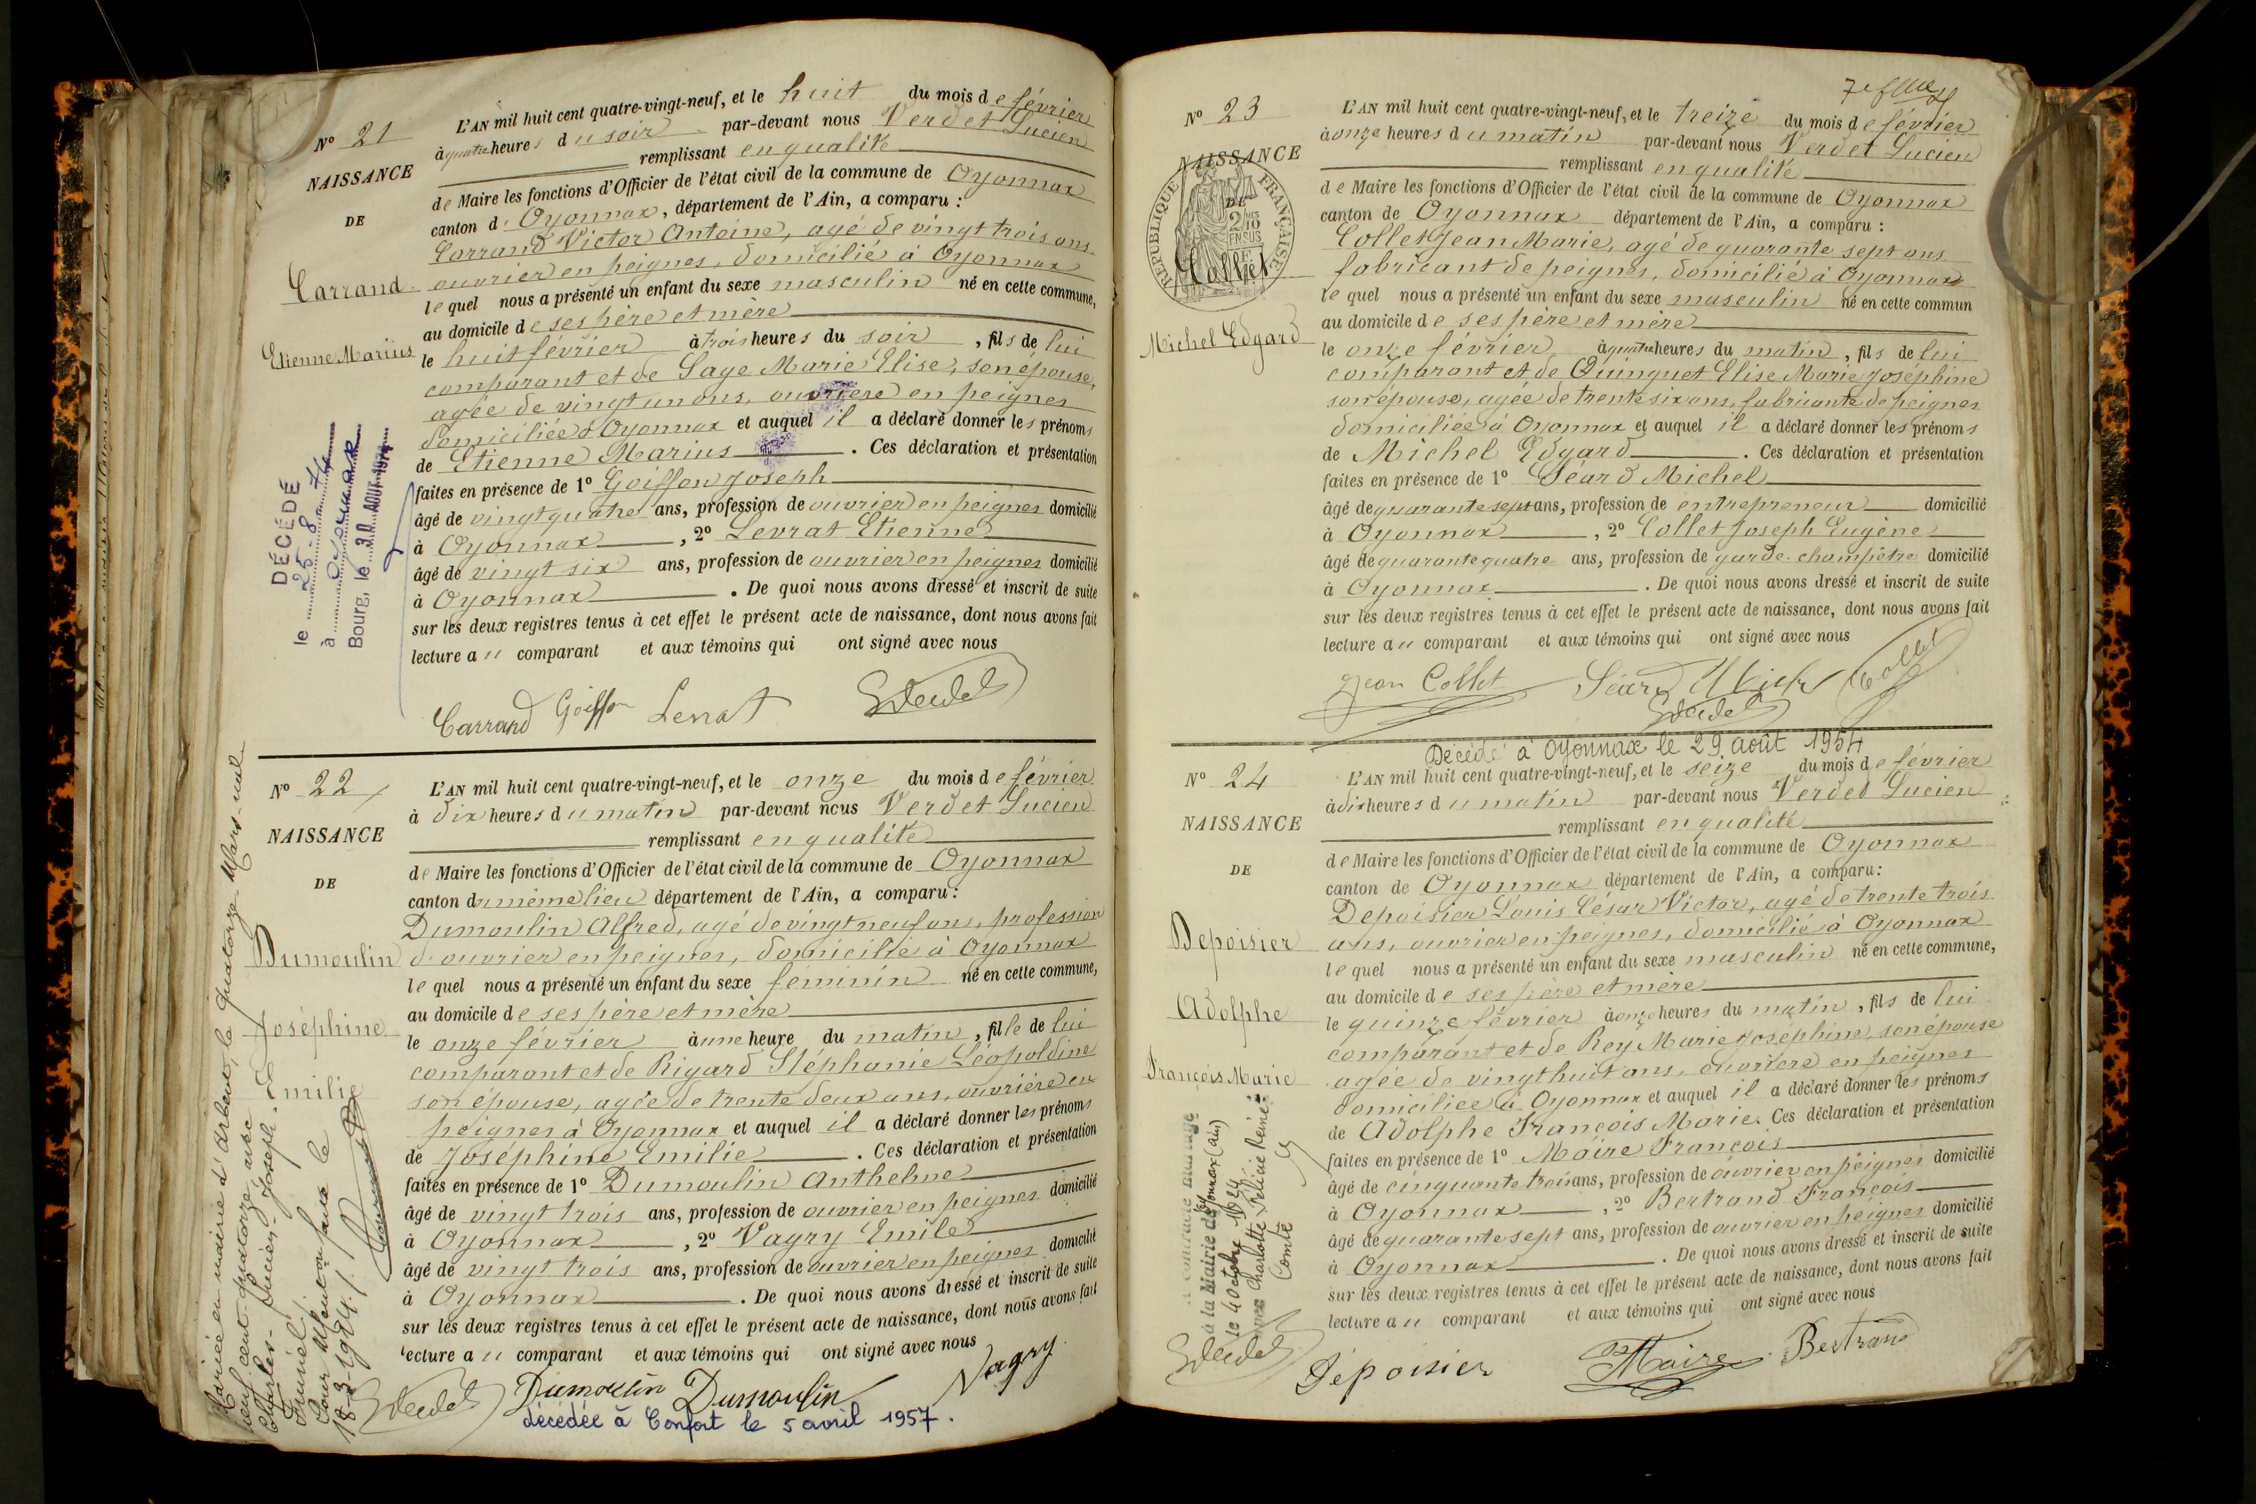 N° 21
NAISSANCE
DE
Carrand
Etienne Marius
L'AN mil huit cent quatre-vingt-neuf, et le huit du mois de février
à quatre heures du soir par-devant nous Verdet Lucien
remplissant en qualité
de Maire les fonctions d'Officier de l'état civil de la commune de Oyonnax
canton d' Oyonnax, département de l'Ain, a comparu :
Carrand Victor Antoine, agé de vingt trois ans
ouvrier en peignes, domicilié à Oyonnax
lequel nous a présenté un enfant du sexe masculin né en cette commune,
au domicile de ses père et mère
le huit février à trois heures du soir, fils de lui
comparant et de Sage Marie Elise, son épouse,
agée de vingt un ans, ouvrière en peignes
domiciliée à Oyonnax et auquel il a déclaré donner les prénoms
de Etienne Marius. Ces déclaration et présentation
faites en présence de 1° Goiffon Joseph
âgé de vingt quatre ans, profession de ouvrier en peignes domicilié
à Oyonnax, 2° Levrat Etienne
âgé de vingt six ans, profession de ouvrier en peignes domicilié
à Oyonnax. De quoi nous avons dressé et inscrit de suite
sur les deux registres tenus à cet effet le présent acte de naissance, dont nous avons fait
lecture au comparant et aux témoins qui ont signé avec nous
Carrand Goiffon Levrat Verdet
DÉCÉDÉ
le 25-8-74
à Oyonnax
Bourg, le 30 AOUT 1974
N° 22
NAISSANCE
DE
Dumoulin
Joséphine
Emilie
L'AN mil huit cent quatre-vingt-neuf, et le onze du mois de février
à dix heures du matin par-devant nous Verdet Lucien
remplissant en qualité
de Maire les fonctions d'Officier de l'état civil de la commune de Oyonnax
canton du même lieu département de l'Ain, a comparu :
Dumoulin Alfred, agé de vingt neuf ans, profession
d'ouvrier en peignes, domicilié à Oyonnax
lequel nous a présenté un enfant du sexe féminin né en cette commune,
au domicile de ses père et mère
le onze février à une heure du matin, fille de lui
comparant et de Rigard Stéphanie Léopoldine
son épouse, agée de trente deux ans, ouvrière en
peignes à Oyonnax et auquel il a déclaré donner les prénoms
de Joséphine Emilie. Ces déclaration et présentation
faites en présence de 1° Dumoulin Anthelme
âgé de vingt trois ans, profession de ouvrier en peignes domicilié
à Oyonnax, 2° Vagry Emile
âgé de vingt trois ans, profession de ouvrier en peignes domicilié
à Oyonnax. De quoi nous avons dressé et inscrit de suite
sur les deux registres tenus à cet effet le présent acte de naissance, dont nous avons fait
lecture au comparant et aux témoins qui ont signé avec nous
Verdet Dumoulin Dumoulin Vagry
décédée à Confort le 5 avril 1957.
Mariée en mairie d'Arbent, le quatorze Mars mil
neuf cent quatorze avec
Charles-Lucien-Joseph
Pour Mention faite le
18-3-1914.
7e flle
N° 23
NAISSANCE
DE
RÉPUBLIQUE FRANÇAISE
2/10 EN SUS
Collet
Michel Edgard
L'AN mil huit cent quatre-vingt-neuf, et le treize du mois de février
à onze heures du matin par-devant nous Verdet Lucien
remplissant en qualité
de Maire les fonctions d'Officier de l'état civil de la commune de Oyonnax
canton de Oyonnax département de l'Ain, a comparu :
Collet Jean Marie, agé de quarante sept ans
fabricant de peignes, domicilié à Oyonnax
lequel nous a présenté un enfant du sexe masculin né en cette commun
au domicile de ses père et mère
le onze février à quatre heures du matin, fils de lui
comparant et de Quinquet Elise Marie Joséphine
son épouse, agée de trente six ans, fabricante de peignes
domiciliée à Oyonnax et auquel il a déclaré donner les prénoms
de Michel Edgard. Ces déclaration et présentation
faites en présence de 1° Séard Michel
âgé de quarante sept ans, profession de entrepreneur domicilié
à Oyonnax, 2° Collet Joseph Eugène
âgé de quarante quatre ans, profession de garde-champêtre domicilié
à Oyonnax. De quoi nous avons dressé et inscrit de suite
sur les deux registres tenus à cet effet le présent acte de naissance, dont nous avons fait
lecture au comparant et aux témoins qui ont signé avec nous
Jean Collet Séard Michel Collet
Verdet
Décédé à Oyonnax le 29 août 1954
N° 24
NAISSANCE
DE
Depoisier
Adolphe
François Marie
L'AN mil huit cent quatre-vingt-neuf, et le seize du mois de février
à dix heures du matin par-devant nous Verdet Lucien
remplissant en qualité
de Maire les fonctions d'Officier de l'état civil de la commune de Oyonnax
canton de Oyonnax département de l'Ain, a comparu :
Depoisier Louis César Victor, agé de trente trois
ans, ouvrier en peignes, domicilié à Oyonnax
lequel nous a présenté un enfant du sexe masculin né en cette commune,
au domicile de ses père et mère
le quinze février à onze heures du matin, fils de lui
comparant et de Rey Marie Joséphine, son épouse
agée de vingt huit ans, ouvrière en peignes
domiciliée à Oyonnax et auquel il a déclaré donner les prénoms
de Adolphe François Marie. Ces déclaration et présentation
faites en présence de 1° Maire François
âgé de cinquante trois ans, profession de ouvrier en peignes domicilié
à Oyonnax, 2° Bertrand François
âgé de quarante sept ans, profession de ouvrier en peignes domicilié
à Oyonnax. De quoi nous avons dressé et inscrit de suite
sur les deux registres tenus à cet effet le présent acte de naissance, dont nous avons fait
lecture au comparant et aux témoins qui ont signé avec nous
Verdet Dépoisier Maire Bertrand
A contracté mariage
à la Mairie de Oyonnax (Ain)
le 4 octobre 1924
avec Charlotte Félicie Rémée
Comte